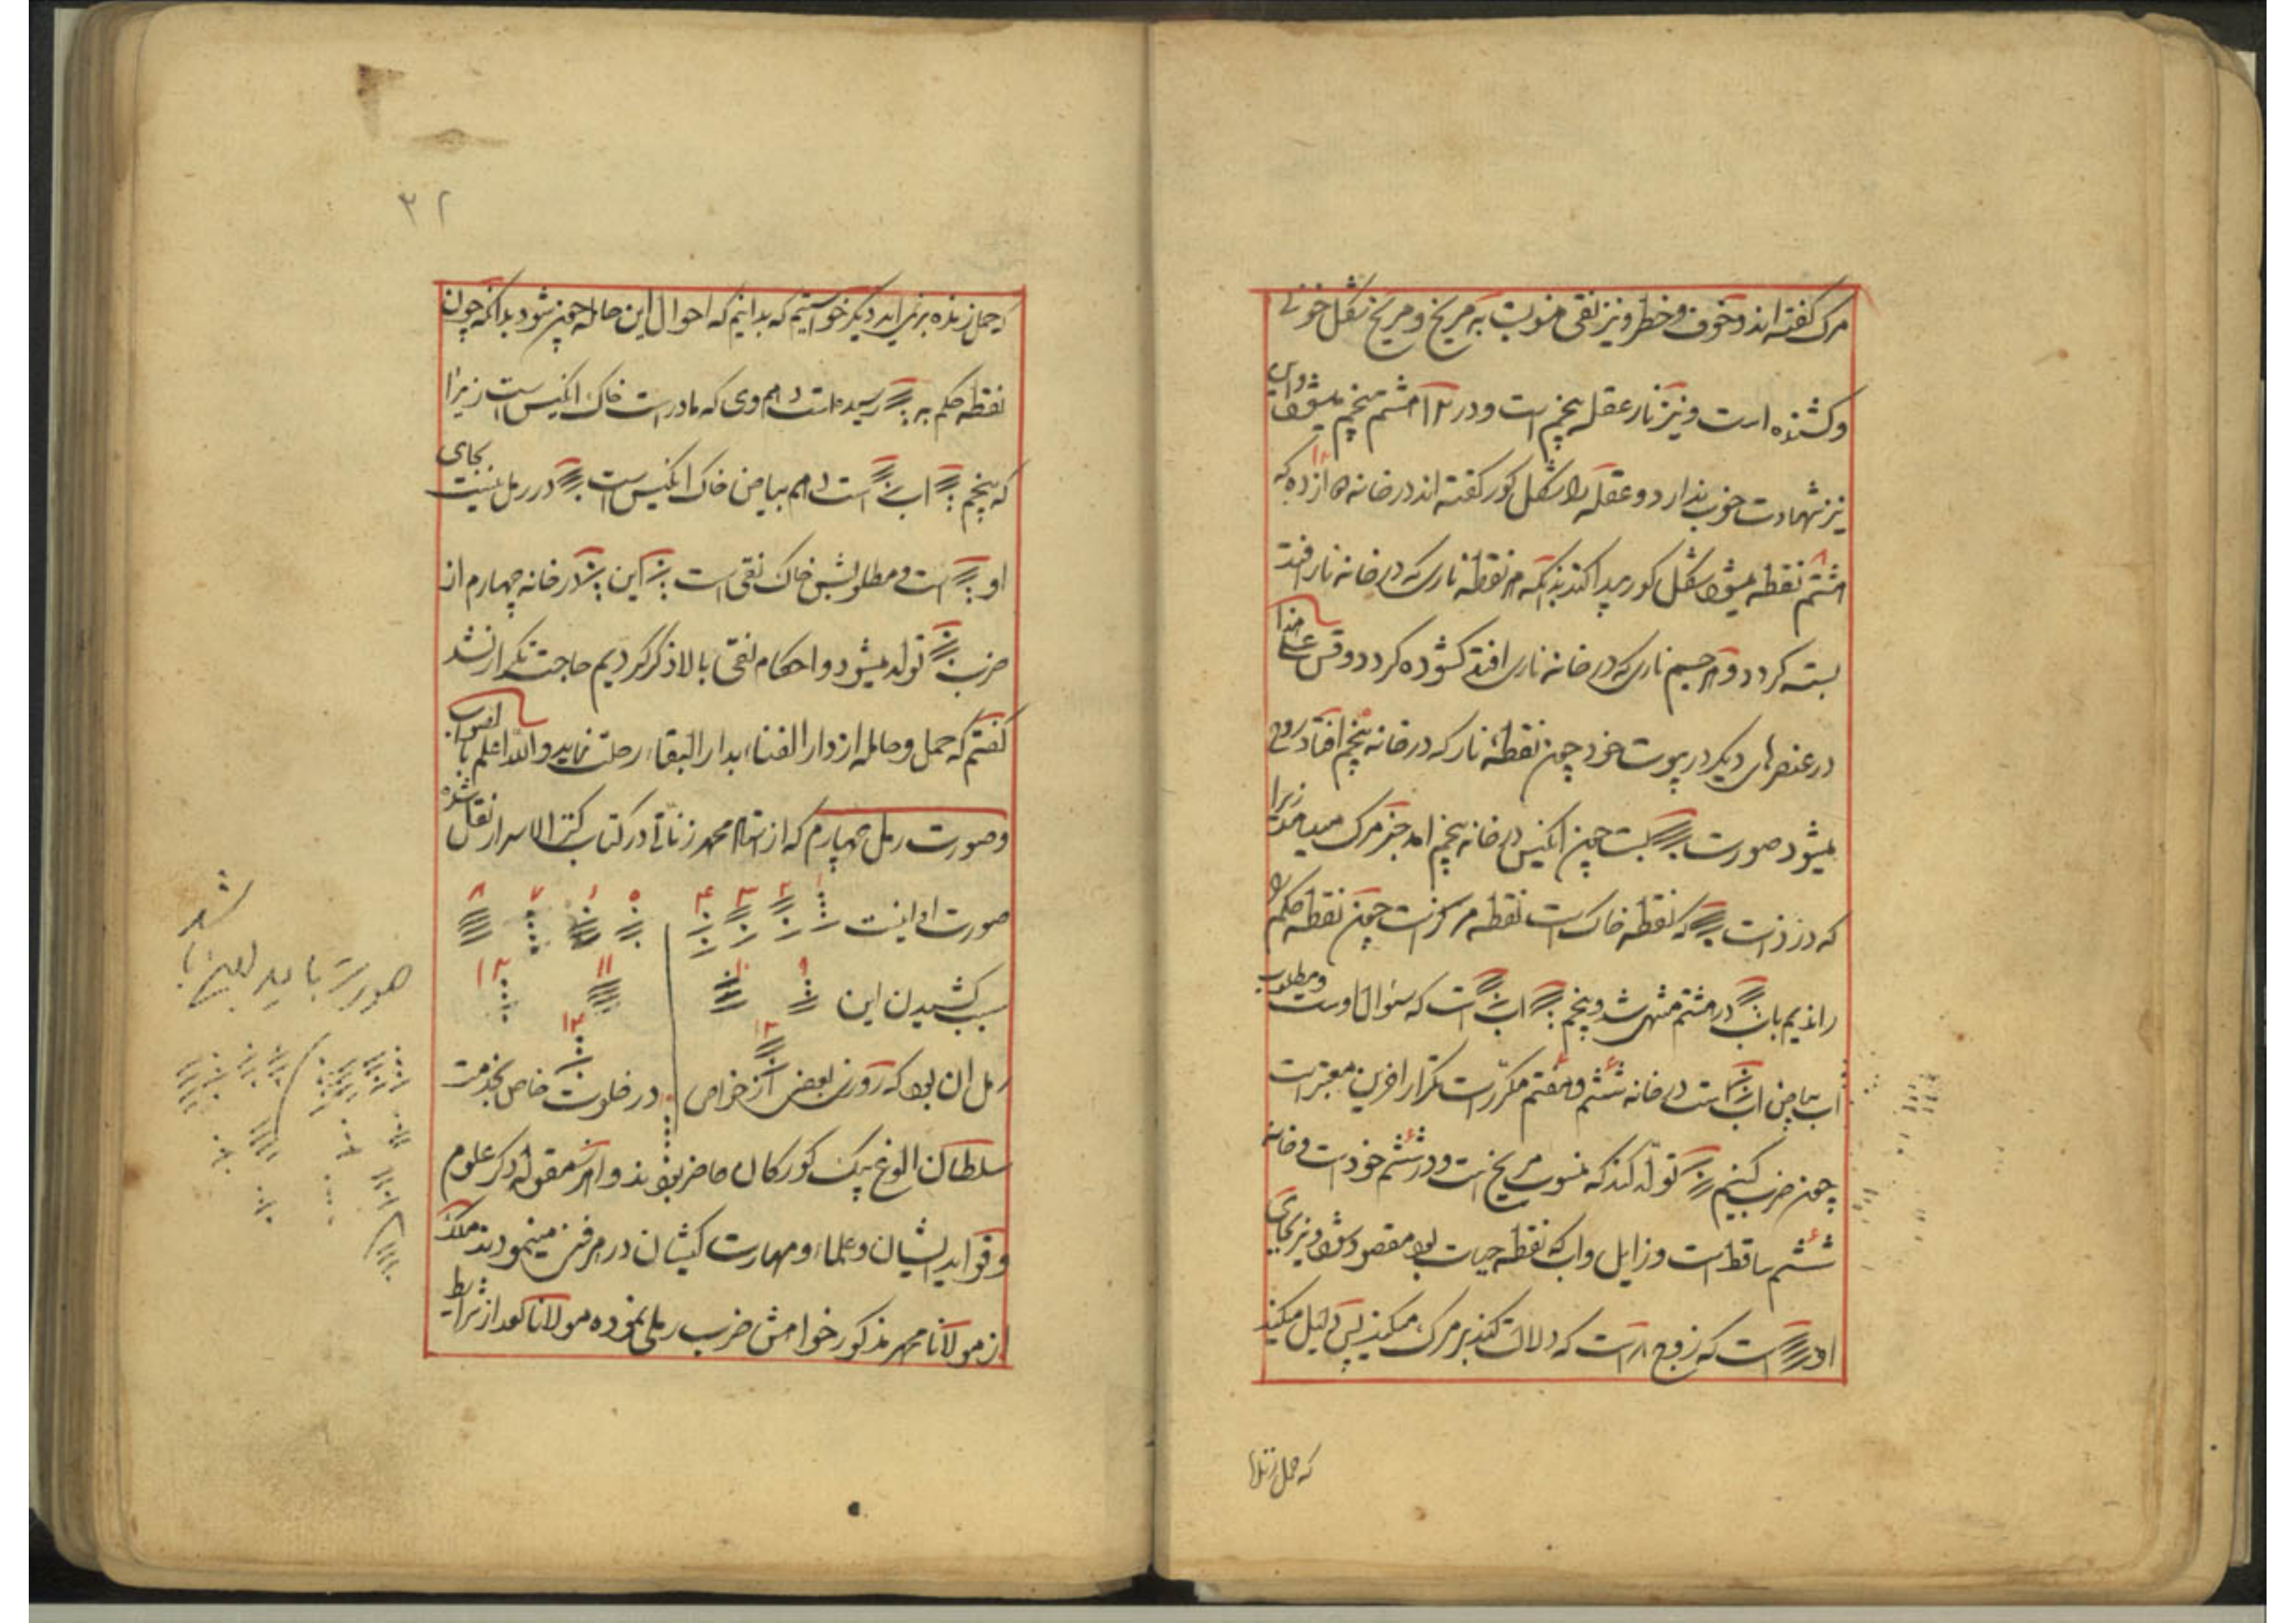 مرک کفته اند و خوف و خطر و نیز نقی منسوبست به مریخ و مریخ شکل خونی
و کشنده است و نیز نار عقله پنجم است و در ۱۲ هشتم پنجم میشود و این
نیز شهادت خوب ندارد و عقله را شکل کور کفته اند در خانه ۱۵ از ده که
هشتم نقطه میشود شکل کور پیدا کند بدانکه هر نقطه ناری که در خانه نار افتد
بسته کردد و هر جسم ناری که در خانه ناری افتد کشوده کردد و قس علی هذا
در عنصرهای دیکر در پوست خود چون نقطه نار که در خانه پنجم افتاد
میشود صورت است چون انکیس در خانه پنجم امد خبر مرک میدهد زیرا
که نقطه خاک است نقطه مرکز است چون نقطه حکم را
راندیم با در هشتم منتهی شد و پنجم اب است که سئوال اوست و مطلوب
اب بیاض اب است در خانه ششم و هفتم مکرّر است تکرار افرین معتبر است
چون ضرب کنیم تولّد کند که منسوب مریخ است و در ششم خود است و خانه
ششم ساقط است و زایل و اب که نقطه حیات بود مقصود شد و نیز بجای
او است که زوج ۸ است که دلالت کند بر مرک میکند پس دلیل میکند
که حمل زنده
۳۲
که حمل زنده بر نمی اید دیکر خواستیم که بدانیم که احوال این حامله چون شود بدانکه چون
نقطه حکم به رسیده است دهم وی که مادر است خاک انکیس است زیرا
که پنجم اب است دهم بیاض خاک انکیس است در رمل نیست بجای
او است و مطلوبش خاک نقی است این در خانه چهارم از
ضرب تولد میشود و احکام نقی بالا ذکر کردیم حاجت تکرار نشد
کفتم که حمل و حامله از دار الفناء بدار البقاء رحلت نماید و الله اعلم بالصواب
و صورت رمل چهارم که از استاد محمد زناتی در کتاب کنز الاسرار نقل شده
صورت او اینست ۱ ۲ ۳ ۴ ۵ ۶ ۷ ۸
سبب کشیدن این ۹ ۱۰ ۱۱ ۱۲
۱۳ ۱۴
رمل ان بود که روزی بعضی از خواص در خلوت خاص بخدمت
سلطان الوغ بیک کورکان حاضر بودند و از هر مقوله ذکر علوم
و فواید ایشان و علماء و مهارت کیشان در هر فن مینمودند ملک
از مولانا محمد مذکور خواهش ضرب رملی نموده مولانا بعد از شرایط
صورت باید
شد